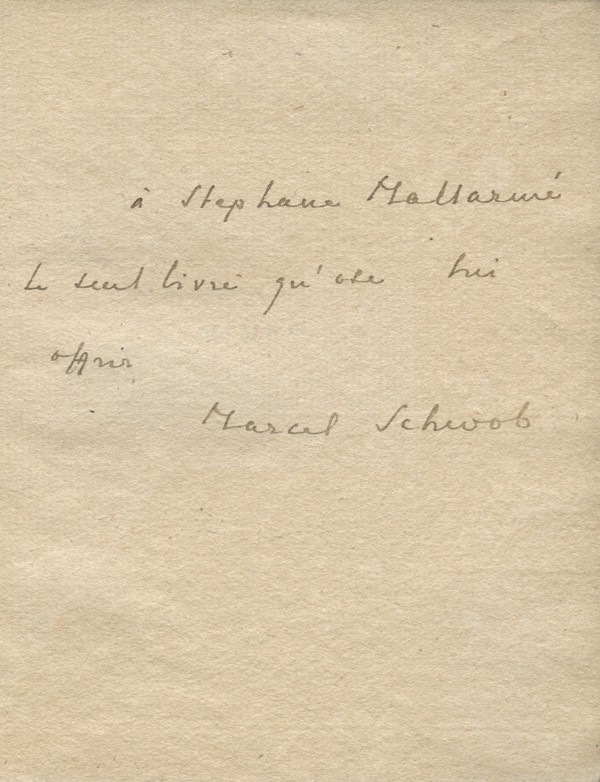 à Stephane Mallarmé
Le seul livre qu'ose lui
offrir
Marcel Schwob